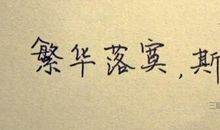 繁华落寞,斯